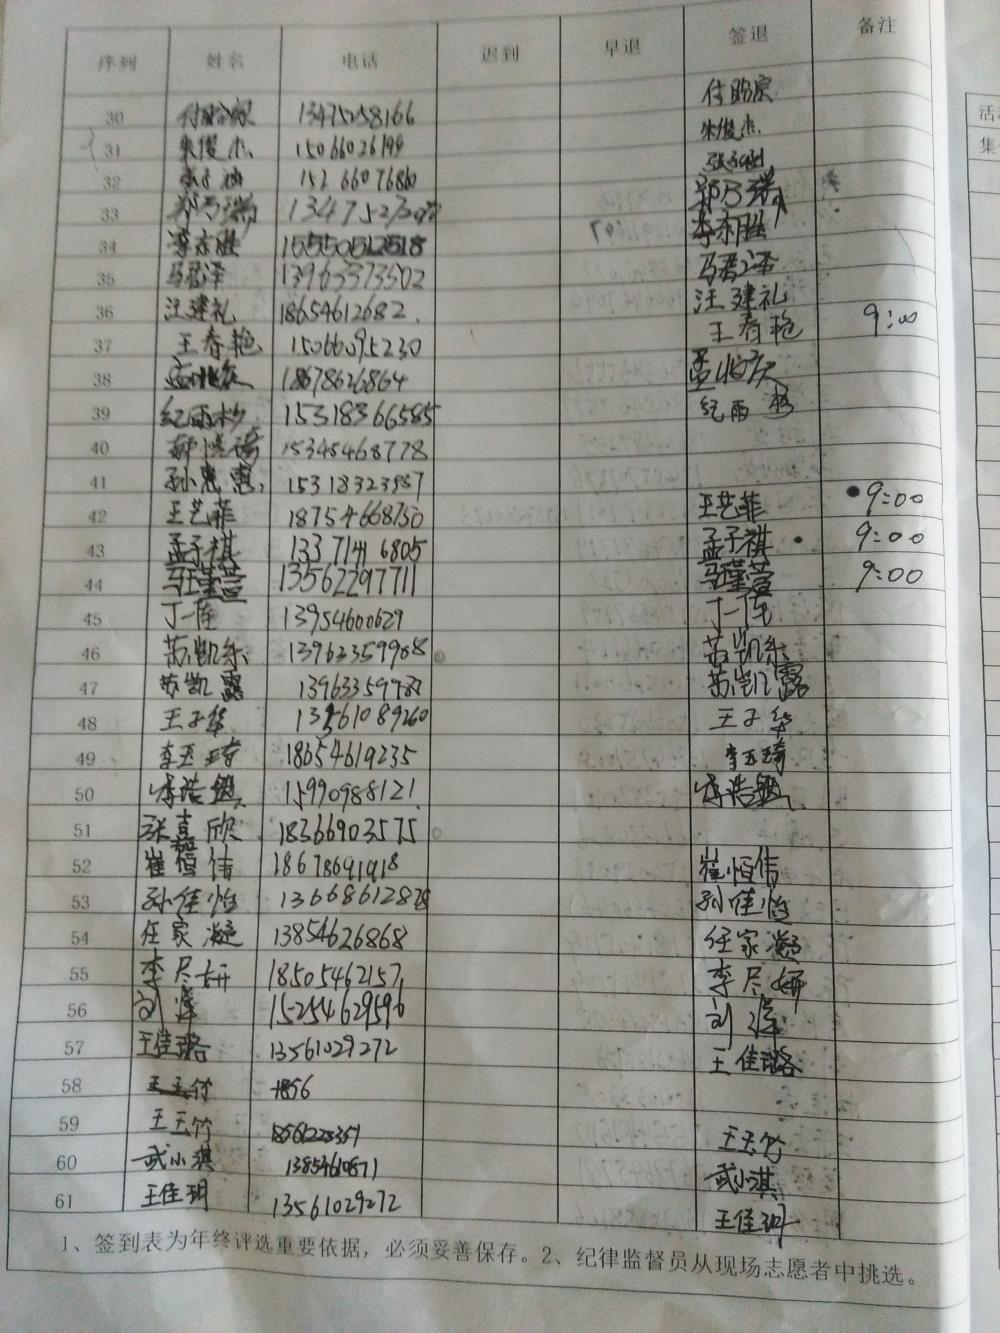 序列 姓名 电话 迟到 早退 签退 备注
30 13475258166
31 朱俊杰 15066026199 朱俊杰
32 15266076860
33 郑乃瑞 郑乃瑞
34 李东胜 15550512518 李东胜
35 马君泽 13963373502 马君泽
36 汪建礼 18654612682 汪建礼
37 王春艳 15066095230 王春艳 9:00
38 孟兆庆 18678626864 孟兆庆
39 纪雨杉 15318366585 纪雨杉
40 15345468778
41 孙惠惠 15318323987
42 王艺菲 18754668750 王艺菲 9:00
43 孟子祺 13371416805 孟子祺 9:00
44 马瑾萱 13562297711 马瑾萱 9:00
45 丁一 13954600629 丁一
46 苏凯乐 13963359988 苏凯乐
47 苏凯露 13963359988 苏凯露
48 王子华 13561089260 王子华
49 李玉琦 18654619235 李玉琦
50 李浩 15990988121 李浩
51 张嘉欣 18366903575
52 崔恒伟 18678691918 崔恒伟
53 孙佳怡 13668612878 孙佳怡
54 任家凝 13854626868 任家凝
55 李尽妍 18505462157 李尽妍
56 刘泽 15254629596 刘泽
57 王佳璐 13561029272 王佳璐
58 王玉竹 1856
59 王玉竹 王玉竹
60 武小淇 13854610871 武小淇
61 王佳玥 13561029272 王佳玥
1、签到表为年终评选重要依据，必须妥善保存。2、纪律监督员从现场志愿者中挑选。